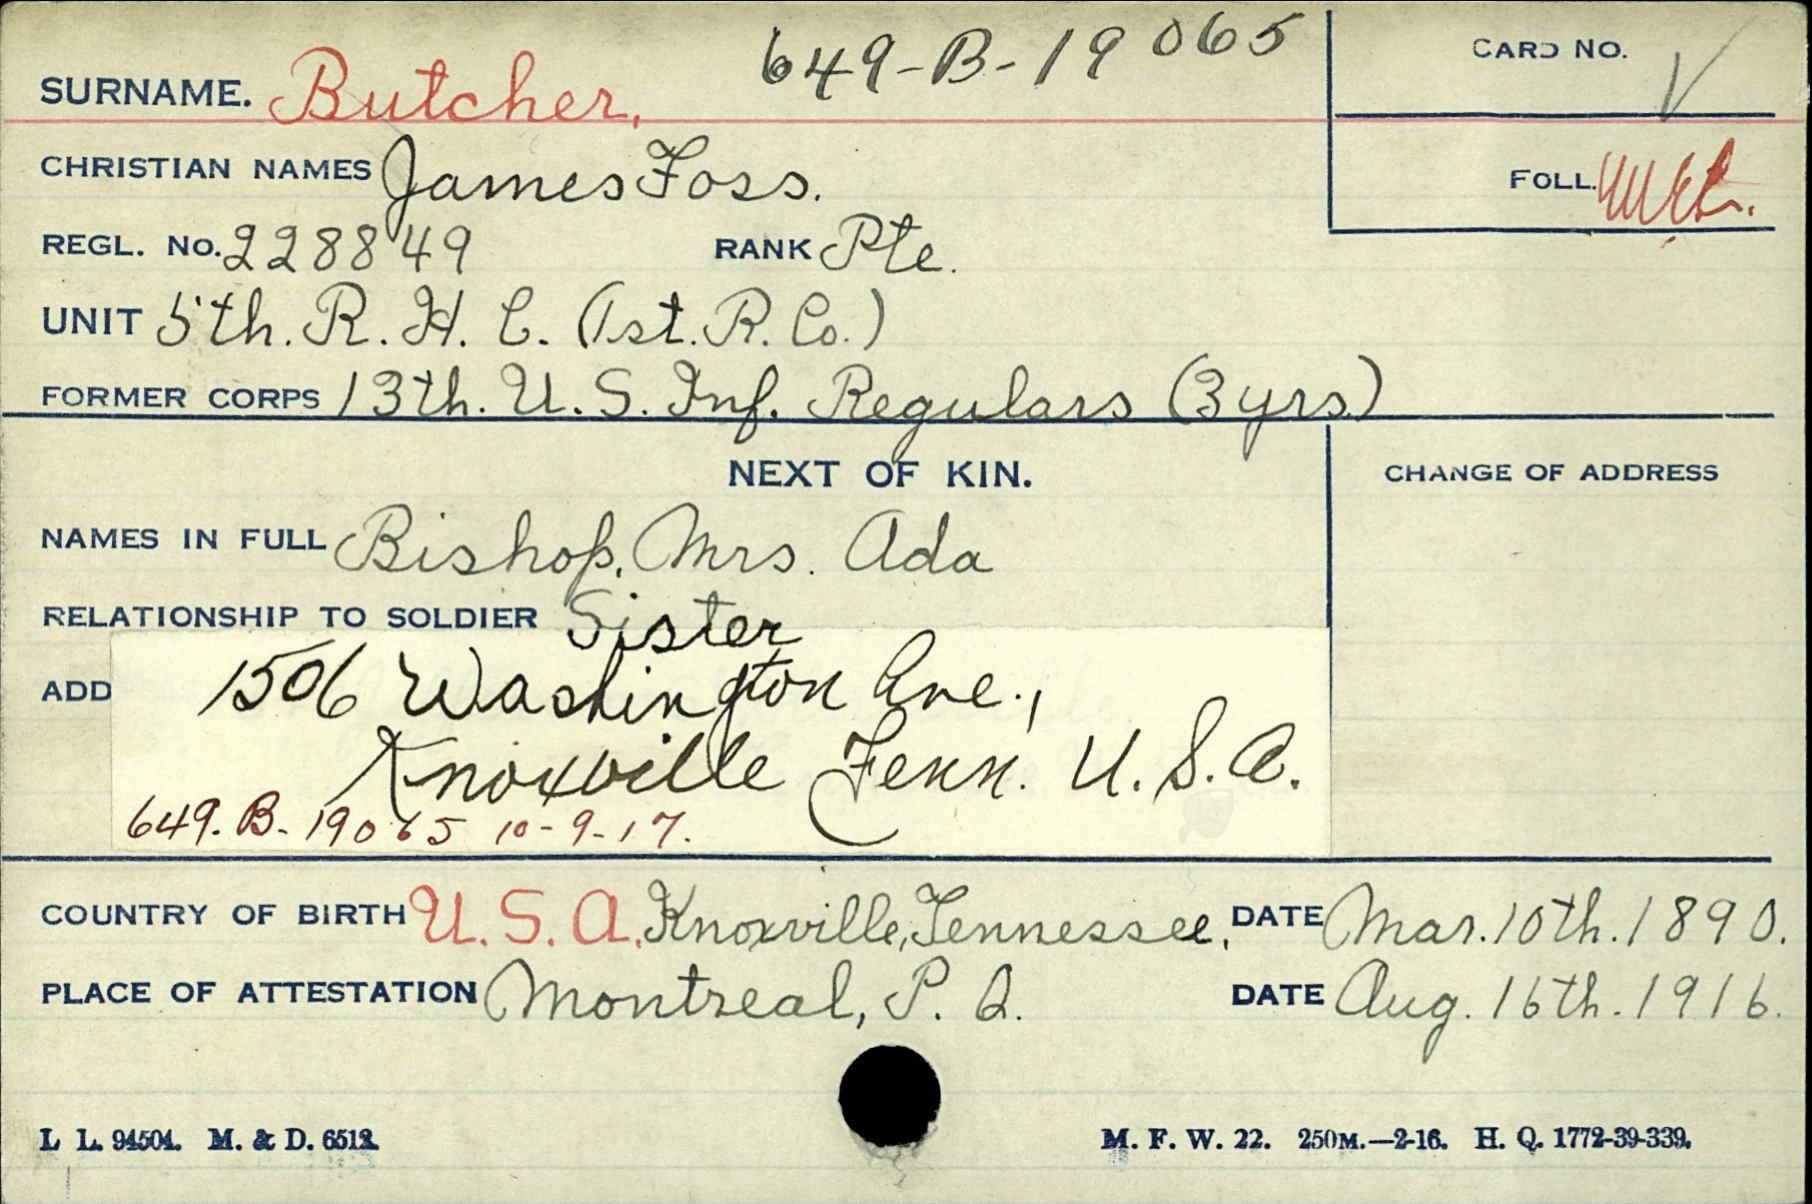 649-B-19065
CARD NO.
SURNAME. Butcher,
CHRISTIAN NAMES James Foss.
FOLL.
REGL. No. 228849 RANK Pte.
UNIT 5th. R. H. C. (1st. R. Co.)
FORMER CORPS 13th. U. S. Inf. Regulars (3 yrs.)
NEXT OF KIN.
CHANGE OF ADDRESS
NAMES IN FULL Bishop, Mrs. Ada
RELATIONSHIP TO SOLDIER Sister
ADD 1506 Washington Ave.,
Knoxville Tenn. U. S. A.
649. B. 19065 10-9-17.
COUNTRY OF BIRTH U. S. A. Knoxville, Tennessee. DATE Mar. 10th. 1890.
PLACE OF ATTESTATION Montreal, P. Q. DATE Aug. 16th. 1916.
L L. 94504. M. & D. 6512.
M. F. W. 22. 250M.—2-16. H. Q. 1772-39-339.